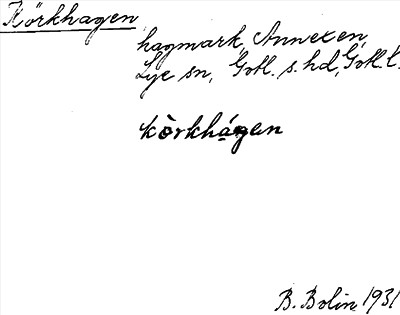 Körkhagen
hagmark, Annexen,
Lye sn, Gotl. s. hd, Gotl. l.
kòrkhágen
B. Bolin 1931